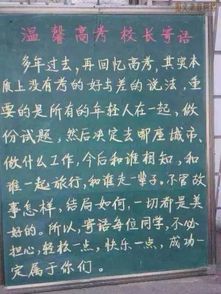 温馨高考 校长寄语
多年过去，再回忆高考，其实本
质上没有考的好与差的说法，重
要的是所有的年轻人在一起，做
份试题，然后决定去哪座城市、
做什么工作，今后和谁相知，和
谁一起旅行，和谁走一辈子。不管故
事怎样，结局如何，一切都是美
好的。所以，寄语每位同学，不必
担心，轻松一点，快乐一点，成功一
定属于你们。